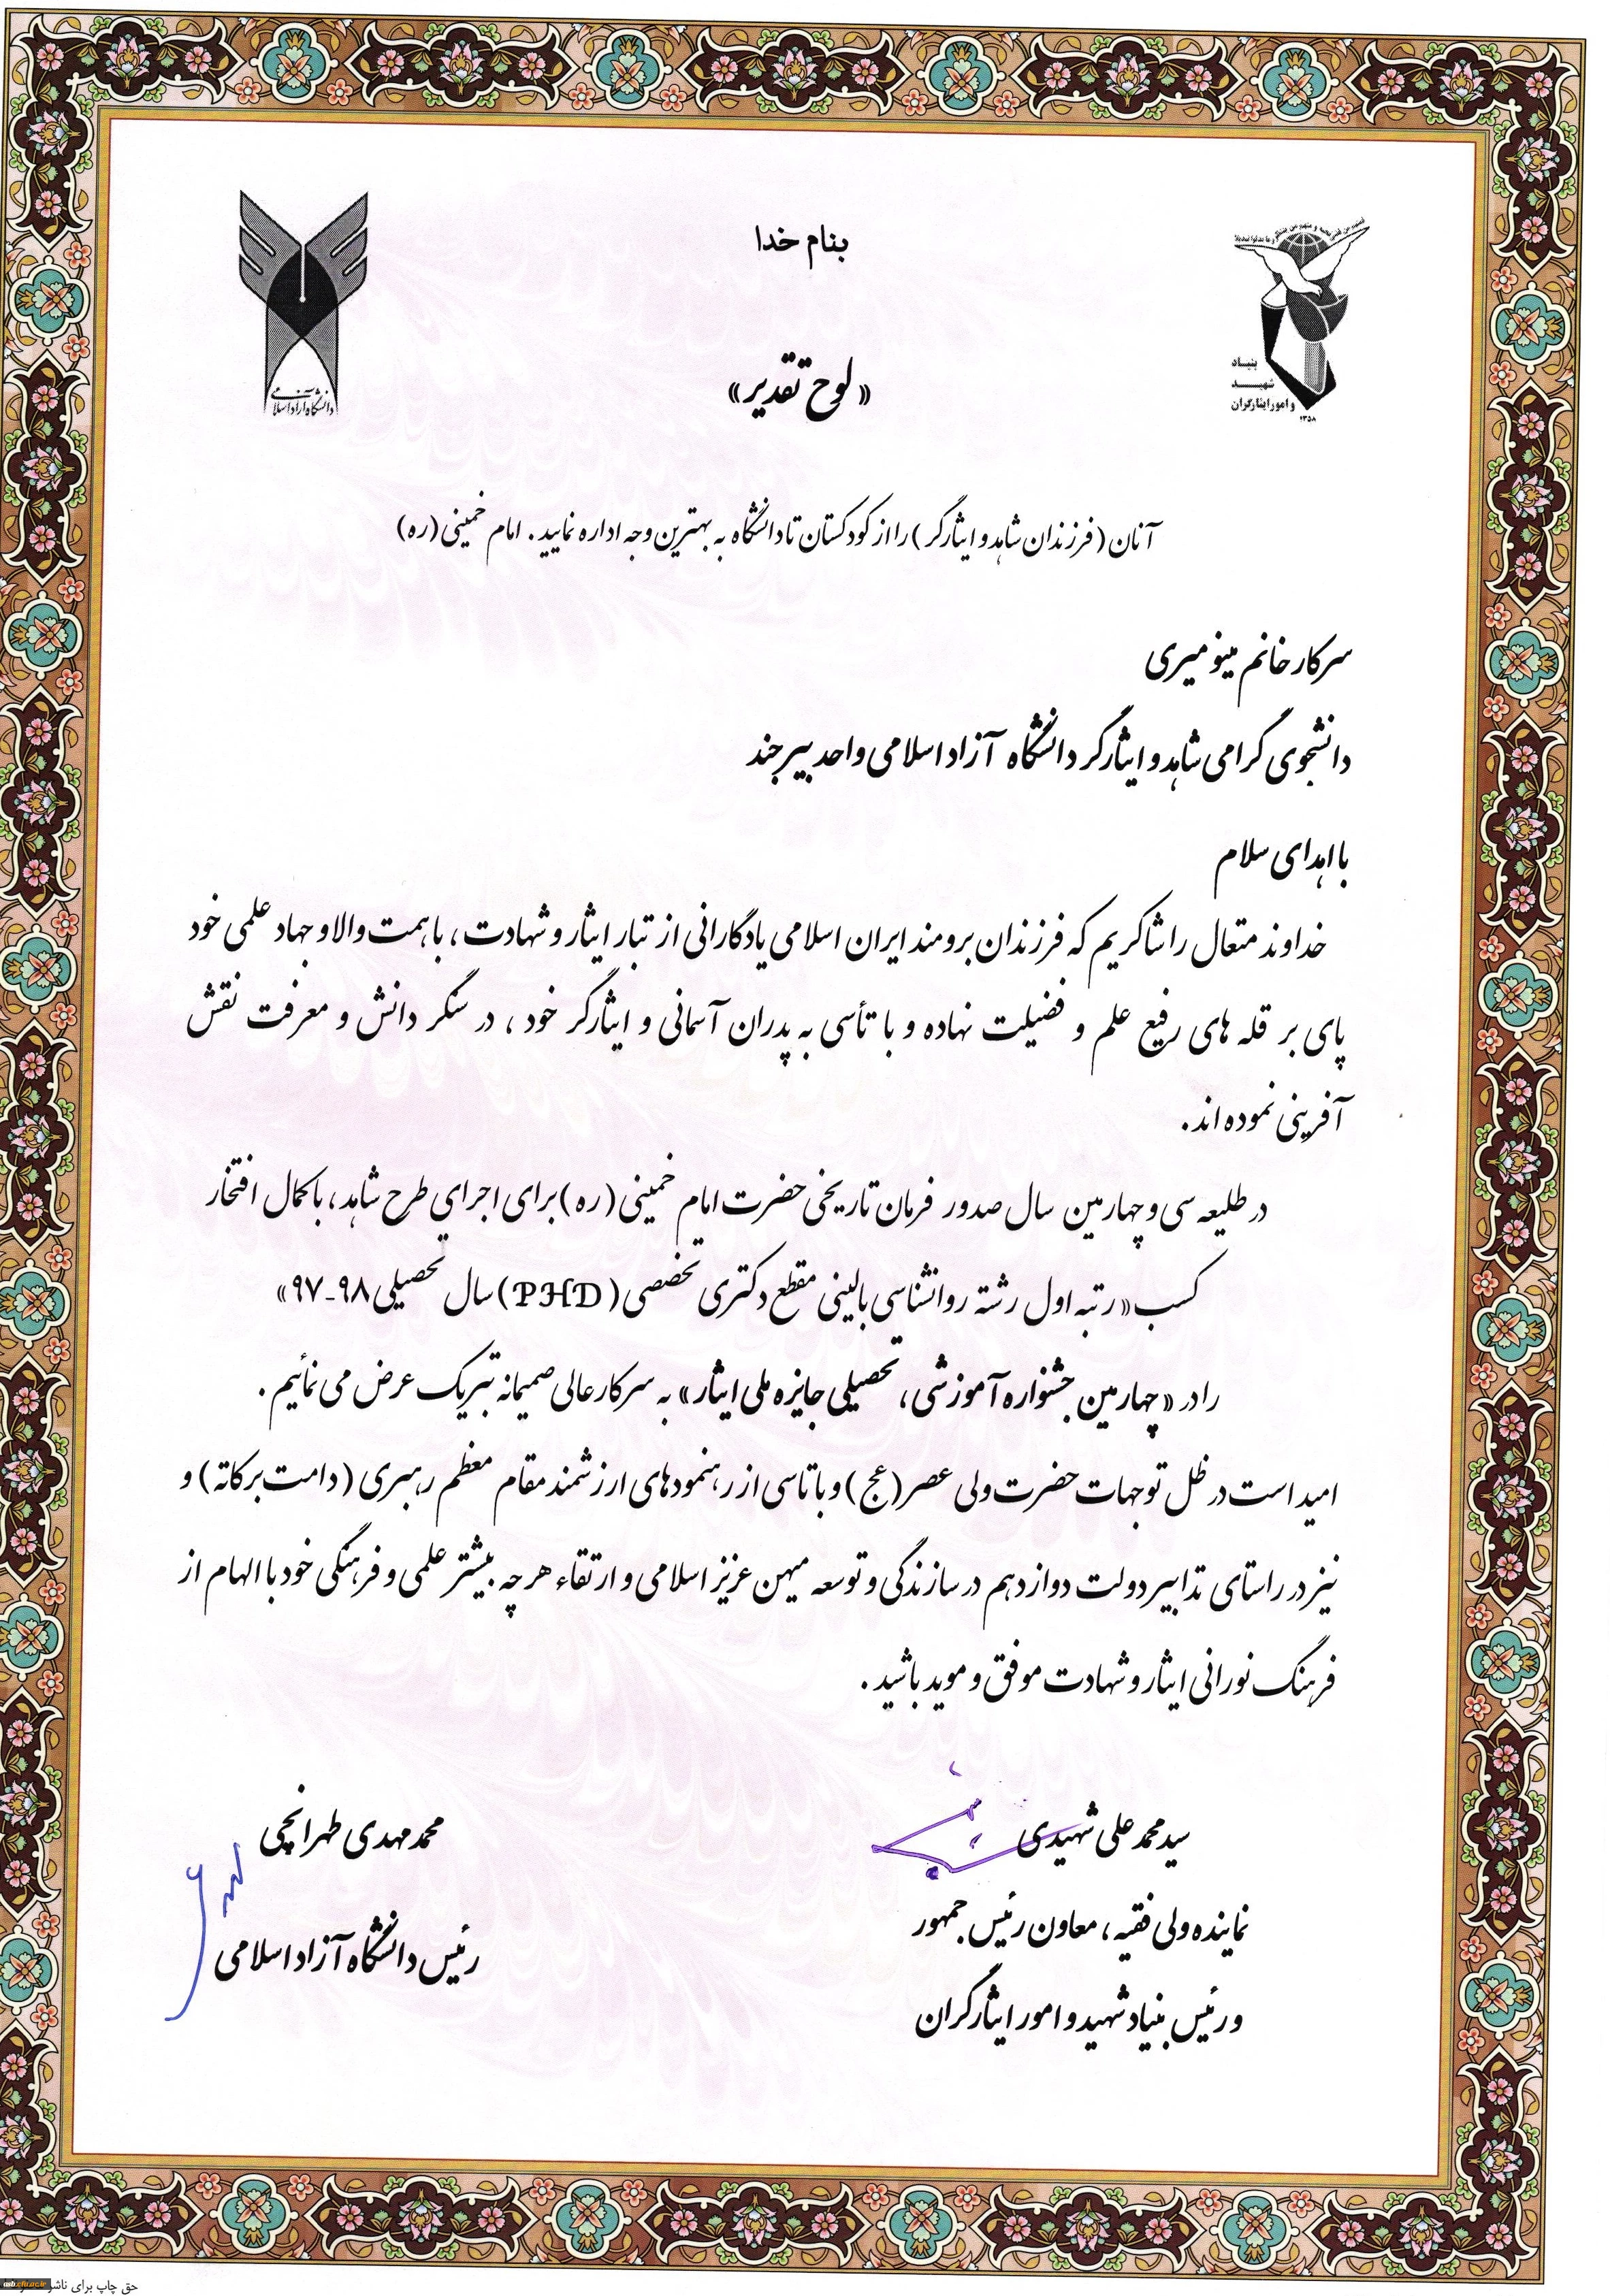 بنام خدا
بنیاد
شهید
و امور ایثارگران
۱۳۵۸
دانشگاه آزاد اسلامی
«لوح تقدیر»
آنان (فرزندان شاهد و ایثارگر) را از کودکستان تا دانشگاه به بهترین وجه اداره نمایید. امام خمینی (ره)
سرکار خانم مینو میری
دانشجوی گرامی شاهد و ایثارگر دانشگاه آزاد اسلامی واحد بیرجند
با اهدای سلام
خداوند متعال را شاکریم که فرزندان برومند ایران اسلامی یادگارانی از تبار ایثار و شهادت، با همت والا و جهاد علمی خود
پای بر قله های رفیع علم و فضیلت نهاده و با تأسی به پدران آسمانی و ایثارگر خود، در سنگر دانش و معرفت نقش
آفرینی نموده اند.
در طلیعه سی و چهارمین سال صدور فرمان تاریخی حضرت امام خمینی (ره) برای اجرای طرح شاهد، با کمال افتخار
کسب «رتبه اول رشته روانشناسی بالینی مقطع دکتری تخصصی (PHD) سال تحصیلی ۹۸-۹۷»
را در «چهارمین جشنواره آموزشی، تحصیلی جایزه ملی ایثار» به سرکار عالی صمیمانه تبریک عرض می نمائیم.
امید است در ظل توجهات حضرت ولی عصر (عج) و با تاسی از رهنمودهای ارزشمند مقام معظم رهبری (دامت برکاته) و
نیز در راستای تدابیر دولت دوازدهم در سازندگی و توسعه میهن عزیز اسلامی و ارتقاء هر چه بیشتر علمی و فرهنگی خود با الهام از
فرهنگ نورانی ایثار و شهادت موفق و موید باشید.
سید محمد علی شهیدی
نماینده ولی فقیه، معاون رئیس جمهور
و رئیس بنیاد شهید و امور ایثارگران
محمد مهدی طهرانچی
رئیس دانشگاه آزاد اسلامی
حق چاپ برای